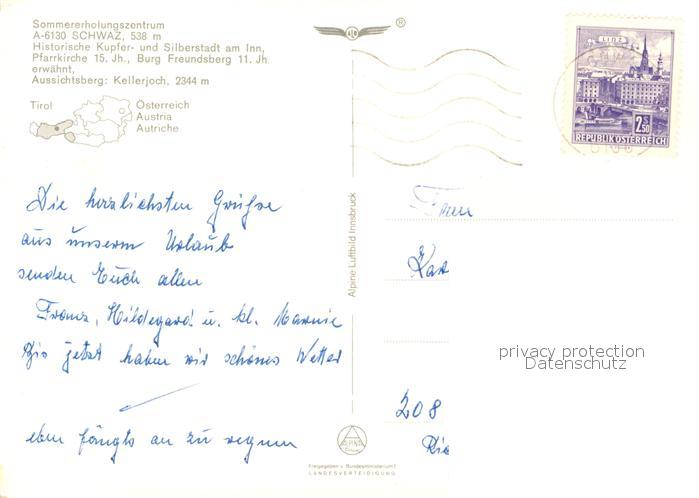 Sommererholungszentrum
A-6130 SCHWAZ, 538 m
Historische Kupfer- und Silberstadt am Inn,
Pfarrkirche 15. Jh., Burg Freundsberg 11. Jh.
erwähnt,
Aussichtsberg: Kellerjoch, 2344 m
Tirol
Österreich
Austria
Autriche
®
LINZ
2.50 S
REPUBLIK ÖSTERREICH
Die herzlichsten Grüße
aus unserem Urlaub
senden Euch allen
Franz, Hildegard u. kl. Marnie
Bis jetzt haben wir schönes Wetter
eben fängts an zu regnen
Alpine Luftbild Innsbruck
ALPINE
Freigegeben v. Bundesministerium f.
LANDESVERTEIDIGUNG
Frau
Kar
208
privacy protection
Datenschutz